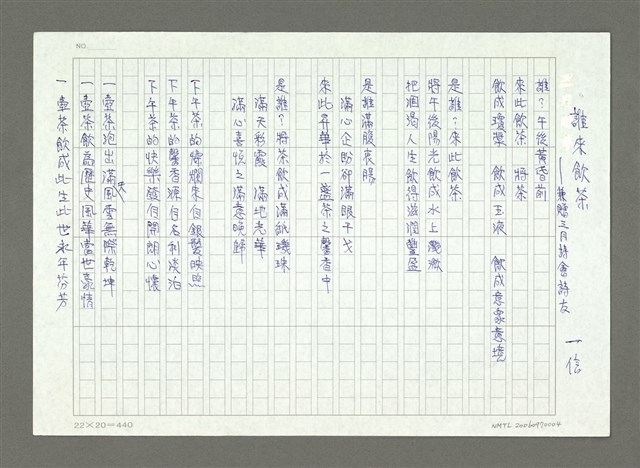 NO.
誰來飲茶
——兼贈三月詩會詩友 一信
誰?午後黃昏前
來此飲茶 將茶
飲成瓊漿 飲成玉液 飲成意象意境
是誰?來此飲茶
將午後陽光飲成水上
把涸渴人生飲得滋潤豐盈
是誰滿腹衷腸
滿心企盼卻滿眼干戈
來此昇華於一盞茶之馨香中
是誰?將茶飲成滿紙璣珠
滿天彩霞 滿地光華
滿心喜悅之滿意晚
下午茶的燦爛來自銀髮映照
下午茶的馨香源自名利淡泊
下午茶的快樂發自開朗心懷
一壺茶泡出滿天風雲無際乾坤
一壺茶飲為歷史風華當世豪情
一壺茶飲成此生此世永年芬芳
22×20=440
NMTL 20060970004